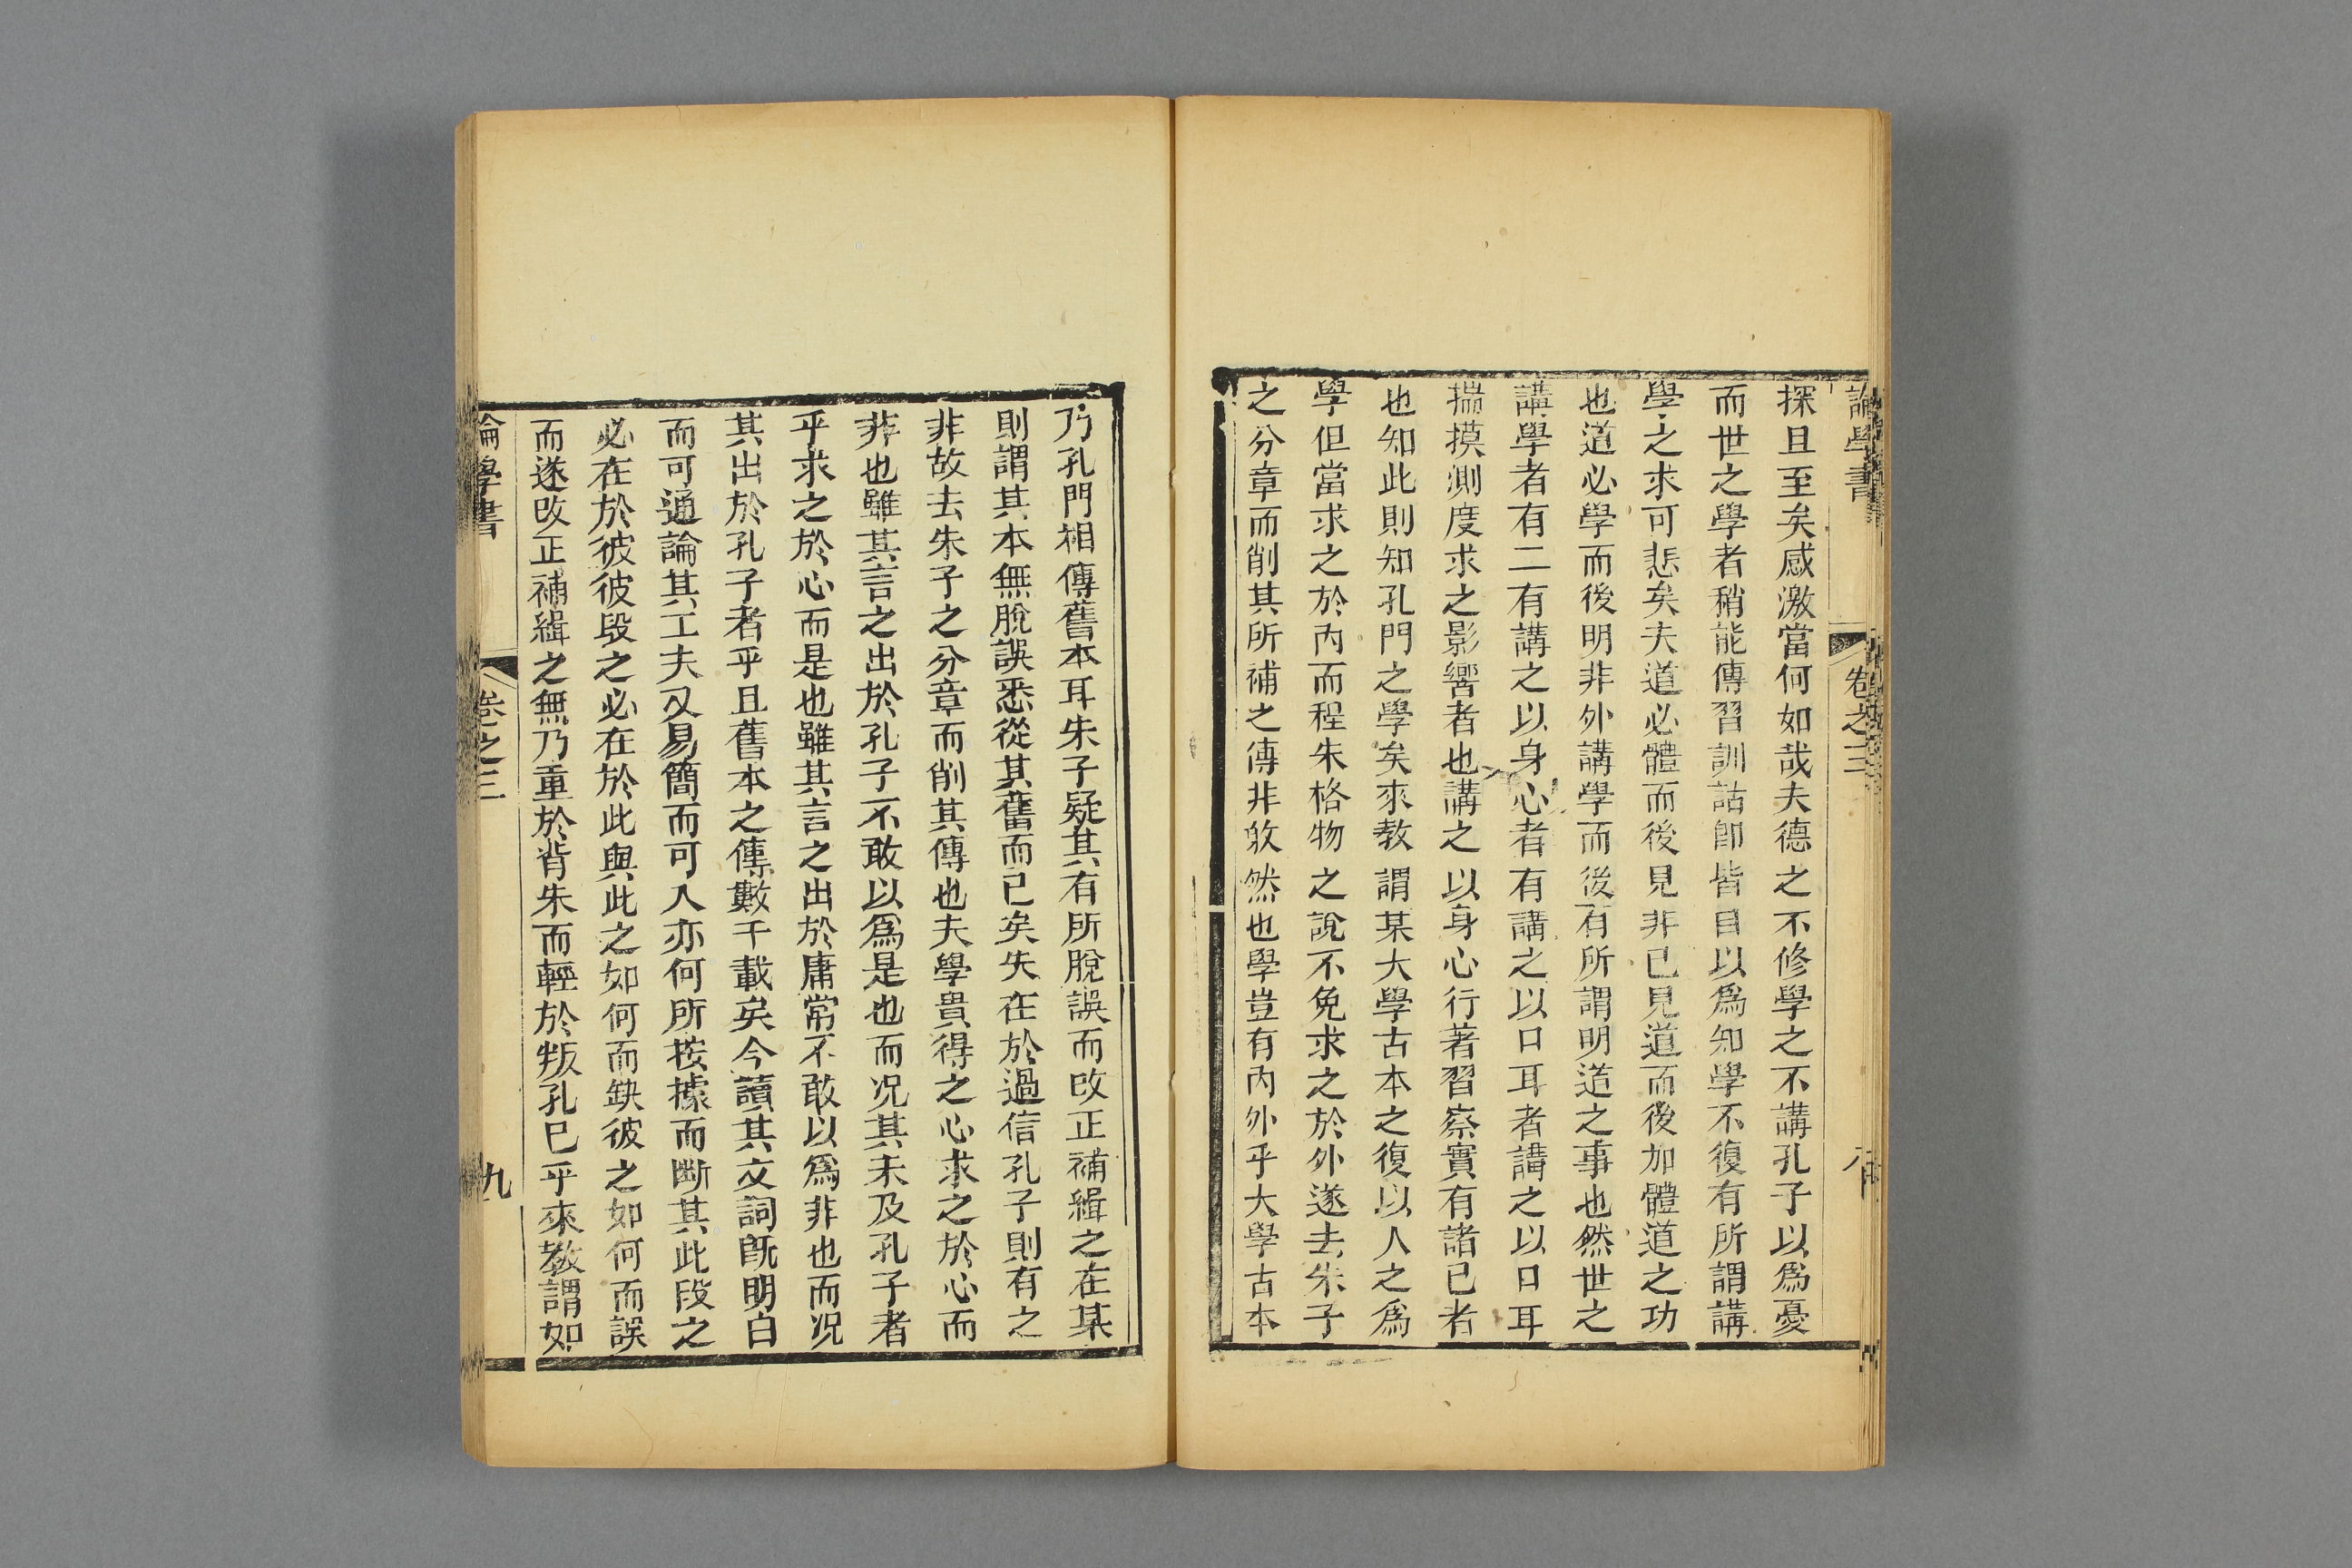 論學書 卷之三 八
探且至矣感激當何如哉夫德之不修學之不講孔子以爲憂
而世之學者稍能傳習訓詁卽皆自以爲知學不復有所謂講
學之求可悲矣夫道必體而後見非已見道而後加體道之功
也道必學而後明非外講學而後有所謂明道之事也然世之
講學者有二有講之以身心者有講之以口耳者講之以口耳
揣摸測度求之影響者也講之以身心行著習察實有諸己者
也知此則知孔門之學矣來教謂某大學古本之復以人之爲
學但當求之於內而程朱格物之說不免求之於外遂去朱子
之分章而削其所補之傳非敢然也學豈有內外乎大學古本
乃孔門相傳舊本耳朱子疑其有所脫誤而改正補緝之在某
則謂其本無脫誤悉從其舊而已矣失在於過信孔子則有之
非故去朱子之分章而削其傳也夫學貴得之心求之於心而
非也雖其言之出於孔子不敢以爲是也而況其未及孔子者
乎求之於心而是也雖其言之出於庸常不敢以爲非也而況
其出於孔子者乎且舊本之傳數千載矣今讀其文詞旣明白
而可通論其工夫又易簡而可入亦何所按據而斷其此段之
必在於彼彼段之必在於此與此之如何而缺彼之如何而誤
而遂改正補緝之無乃重於背朱而輕於叛孔已乎來教謂如
論學書 卷之三 九